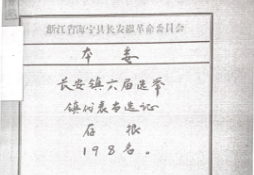 浙江省海宁县长安镇革命委员会
本委
长安镇六届选举
镇代表当选证
存根
198名。